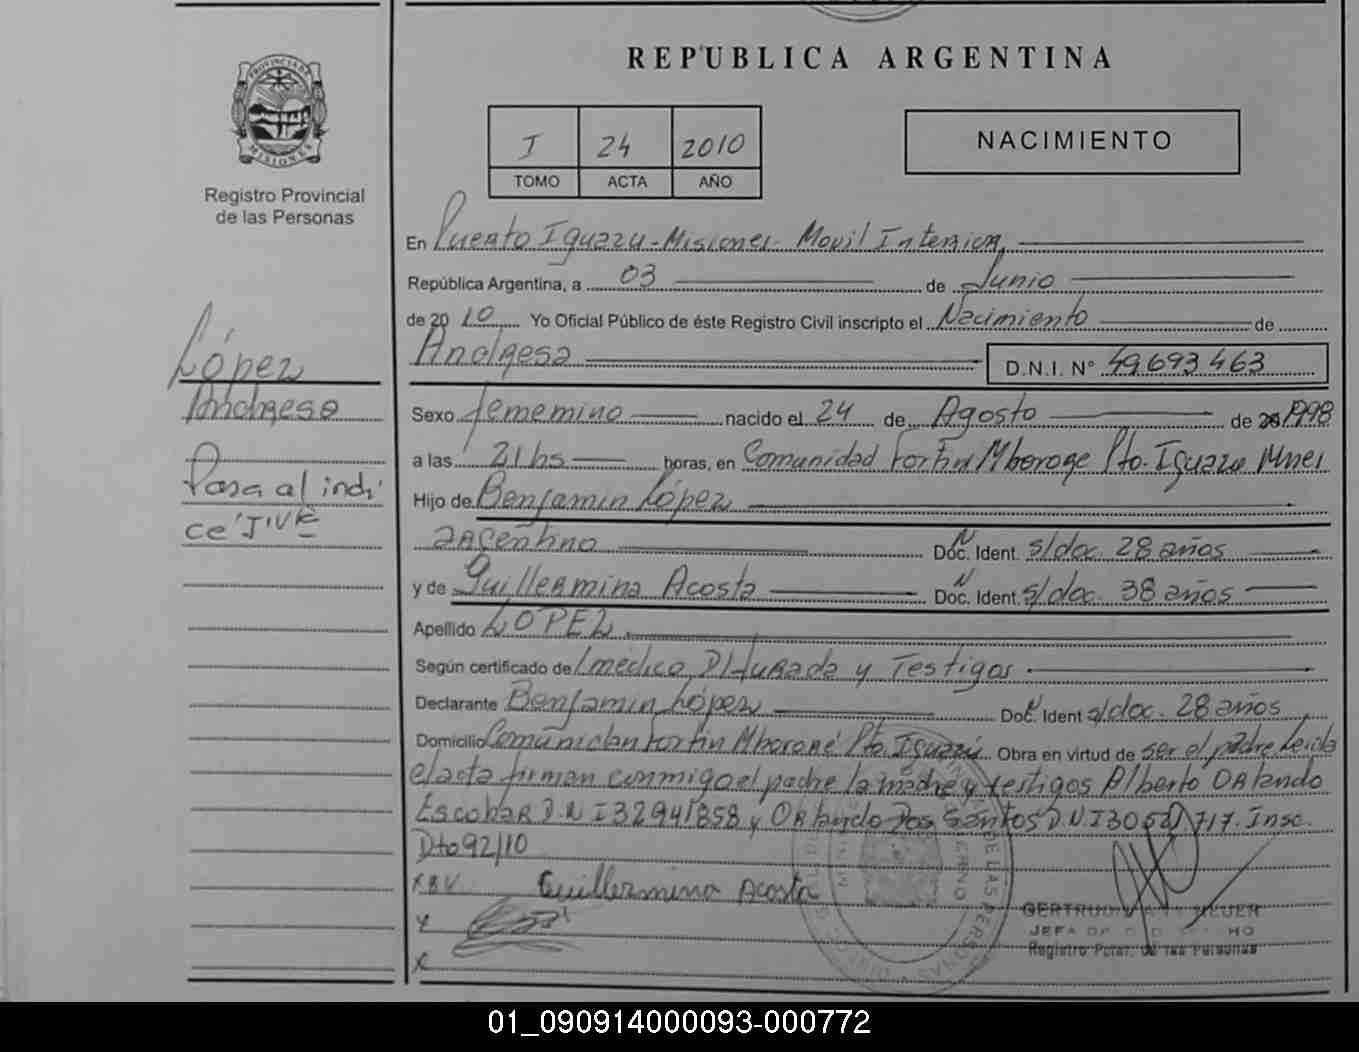 PROVINCIA DE
MISIONES
Registro Provincial
de las Personas
López
Andresa
Pasa al indi
ce
REPUBLICA ARGENTINA
I 24 2010
TOMO ACTA AÑO
NACIMIENTO
En Puerto Iguazu - Misiones - Movil Interior
República Argentina, a 03 de Junio
de 2010 Yo Oficial Público de éste Registro Civil inscripto el Nacimiento de
Andresa D.N.I. Nº 49693463
Sexo femenino nacido el 24 de Agosto de 1998
a las 21 hs horas, en Comunidad Fortin Mborore Pto. Iguazu Mnes
Hijo de Benjamin López
argentino Doc. Ident. s/doc. 28 años
y de Guillermina Acosta Doc. Ident. s/doc. 38 años
Apellido LOPEZ
Según certificado de médico, D/Jurada y Testigos
Declarante Benjamin López Doc. Ident s/doc. 28 años
Domicilio Fortin Mbororé Pto. Iguazú Obra en virtud de ser el padre Leida
el acta firman conmigo el padre la madre y testigos Alberto Orlando
Escobar D.N.I 32941858 y Orlando Dos Santos D.N.I 717. Insc.
Dto 92/10
Guillermina Acosta
JEFA
Registro de las Personas
01_090914000093-000772